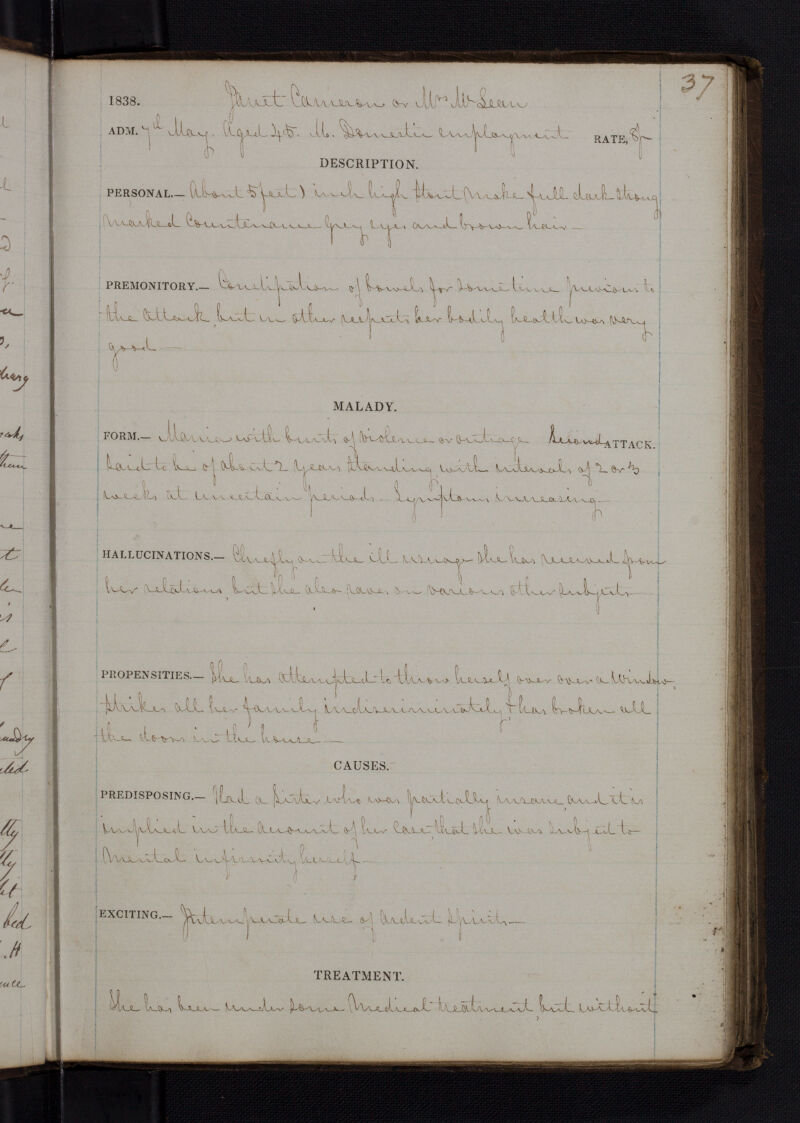 37
1838. Janet Cameron or Mrs McLean
ADM. 7th May. Aged 45. M. Domestic employment RATE, 8/-
DESCRIPTION.
PERSONAL.— About 5 feet 1 inch high Stout make full dark strong
marked Countenance Grey eyes and brown hair —
PREMONITORY.— Constipation of bowels for some time previous to
the attack, but in other respects her bodily health was very
good —
MALADY.
FORM.— Mania with bursts of violence or outrage Second ATTACK.
Said to be of about 2 years standing with intervals of 2 or 3
weeks at uncertain periods — Symptoms increasing —
HALLUCINATIONS.— Chiefly on the ill usage she has received from
her relations, but she also raves on various other subjects —
PROPENSITIES.— She has attempted to throw herself over over a window,
strikes all her family indiscriminately & has broken all
the doors in the house —
CAUSES.
PREDISPOSING.— Had a Sister who was partially insane, and it is
implied in the account of her case, that she was subject to
mental infirmity herself —
EXCITING.— Intemperate use of ardent spirits —
TREATMENT.
She has been under some medical treatment, but without